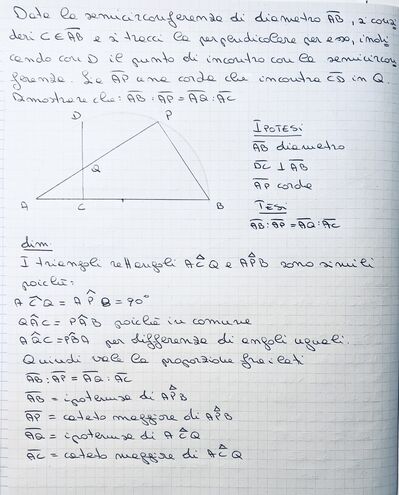 Data la semicirconferenza di diametro AB, si consi
deri C ∈ AB e si tracci la perpendicolare per esso, indi
cando con D il punto di incontro con la semicircon
ferenza. Se AP una corda che incontra CD in Q.
Dimostrare che: AB : AP = AQ : AC
D
P
Q
A
C
B
IPOTESI
AB diametro
DC ⊥ AB
AP corda
TESI
AB : AP = AQ : AC
dim
I triangoli rettangoli ACQ e APB sono simili
poiché:
AĈQ = AP̂B = 90°
QÂC = PÂB poiché in comune
AQ̂C = PB̂A per differenza di angoli uguali.
Quindi vale la proporzione fra i lati
AB : AP = AQ : AC
AB = ipotenusa di APB
AP = cateto maggiore di APB
AQ = ipotenusa di ACQ
AC = cateto maggiore di ACQ